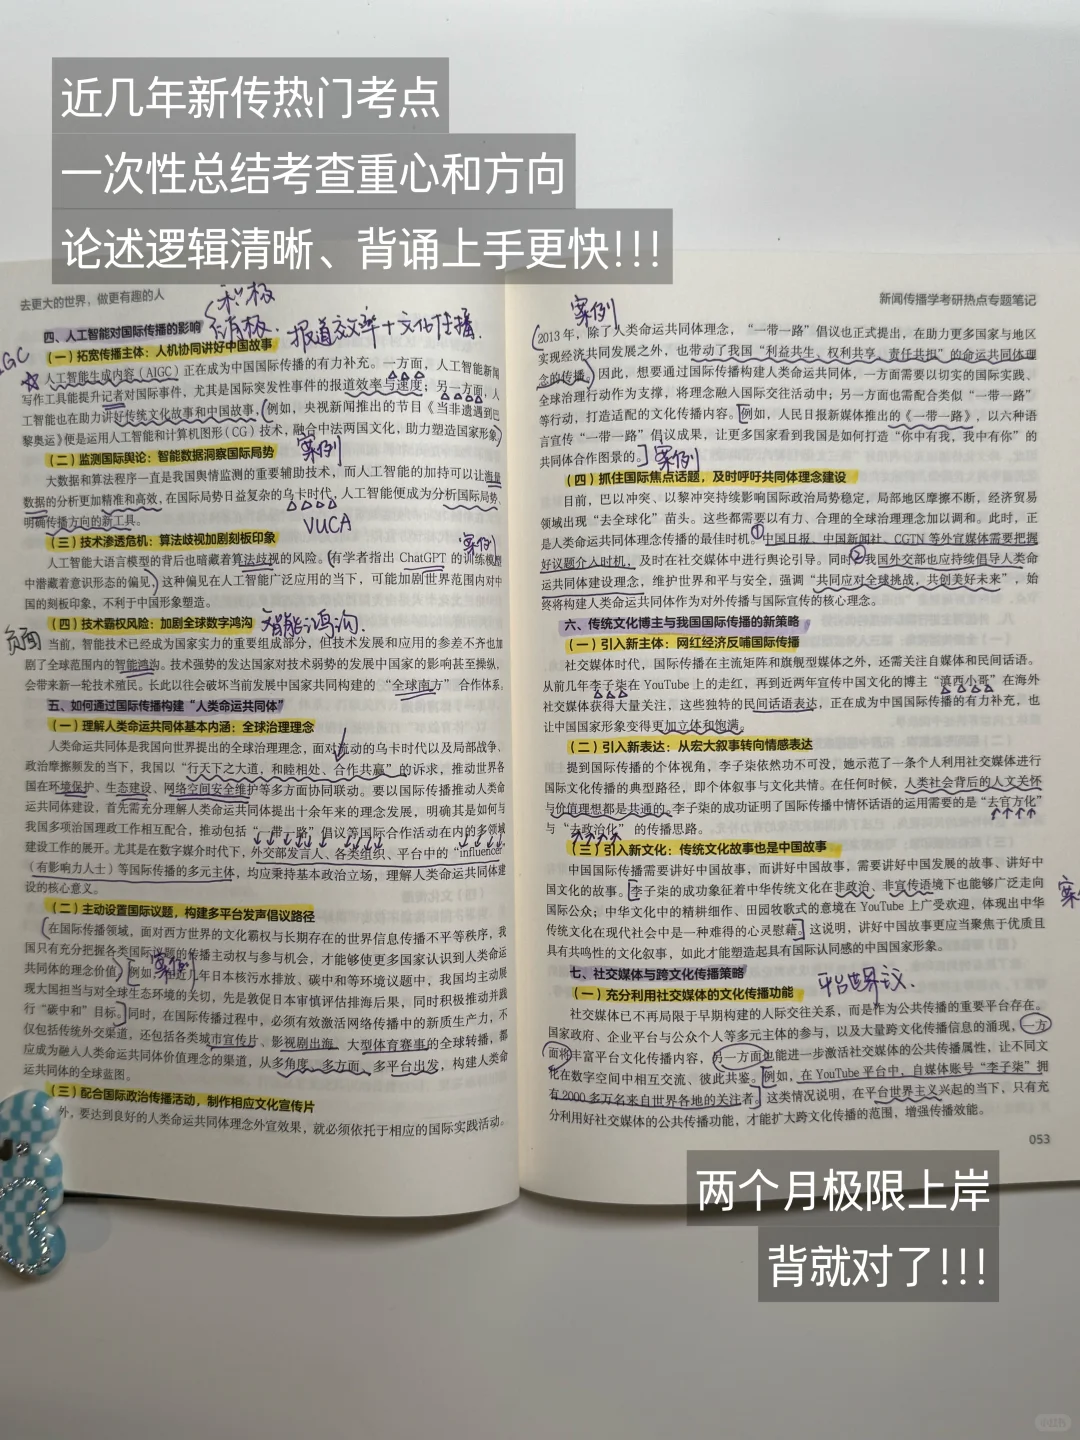 近几年新传热门考点
一次性总结考查重心和方向
论述逻辑清晰、背诵上手更快!!!
去更大的世界，做更有趣的人
积极
消极
报道效率+文化传播
四、人工智能对国际传播的影响
（一）拓宽传播主体：人机协同讲好中国故事
人工智能生成内容（AIGC）正在成为中国国际传播的有力补充。一方面，人工智能新闻
写作工具能提升记者对国际事件，尤其是国际突发性事件的报道效率与速度；另一方面，人
工智能也在助力讲好传统文化故事和中国故事，（例如，央视新闻推出的节目《当非遗遇到巴
黎奥运》便是运用人工智能和计算机图形（CG）技术，融合中法两国文化，助力塑造国家形象）
案例
（二）监测国际舆论：智能数据洞察国际局势
大数据和算法程序一直是我国舆情监测的重要辅助技术，而人工智能的加持可以让海量
数据的分析更加精准和高效，在国际局势日益复杂的乌卡时代，人工智能便成为分析国际局势、
明确传播方向的新工具。
VUCA
（三）技术渗透危机：算法歧视加剧刻板印象
案例
人工智能大语言模型的背后也暗藏着算法歧视的风险。（有学者指出 ChatGPT 的训练模型
中潜藏着意识形态的偏见，）这种偏见在人工智能广泛应用的当下，可能加剧世界范围内对中
国的刻板印象，不利于中国形象塑造。
（四）技术霸权风险：加剧全球数字鸿沟
智能鸿沟
负面
当前，智能技术已经成为国家实力的重要组成部分，但技术发展和应用的参差不齐也加
剧了全球范围内的智能鸿沟。技术强势的发达国家对技术弱势的发展中国家的影响甚至操纵，
会带来新一轮技术殖民。长此以往会破坏当前发展中国家共同构建的“全球南方”合作体系。
五、如何通过国际传播构建“人类命运共同体”
（一）理解人类命运共同体基本内涵：全球治理理念
人类命运共同体是我国向世界提出的全球治理理念，面对流动的乌卡时代以及局部战争、
政治摩擦频发的当下，我国以“行天下之大道，和睦相处、合作共赢”的诉求，推动世界各
国在环境保护、生态建设、网络空间安全维护等多方面协同联动。要以国际传播推动人类命
运共同体建设，首先需充分理解人类命运共同体提出十余年来的理念发展，明确其是如何与
我国多项治国理政工作相互配合，推动包括“一带一路”倡议等国际合作活动在内的多领域
建设工作的展开。尤其是在数字媒介时代下，外交部发言人、各类组织、平台中的“influencer”
（有影响力人士）等国际传播的多元主体，均应秉持基本政治立场，理解人类命运共同体建
设的核心意义。
（二）主动设置国际议题，构建多平台发声倡议路径
在国际传播领域，面对西方世界的文化霸权与长期存在的世界信息传播不平等秩序，我
国只有充分把握各类国际议题的传播主动权与参与机会，才能够使更多国家认识到人类命运
共同体的理念价值）[例如，在近几年日本核污水排放、碳中和等环境议题中，我国均主动展
案例
现大国担当与对全球生态环境的关切，先是敦促日本审慎评估排海后果，同时积极推动并践
行“碳中和”目标。]同时，在国际传播过程中，必须有效激活网络传播中的新质生产力，不
仅包括传统外交渠道，还包括各类城市宣传片、影视剧出海、大型体育赛事的全球转播，都
应成为融入人类命运共同体价值理念的渠道，从多角度、多方面、多平台出发，构建人类命
运共同体的全球蓝图。
（三）配合国际政治传播活动，制作相应文化宣传片
外，要达到良好的人类命运共同体理念外宣效果，就必须依托于相应的国际实践活动。
新闻传播学考研热点专题笔记
案例
（2013 年，除了人类命运共同体理念，“一带一路”倡议也正式提出，在助力更多国家与地区
实现经济共同发展之外，也带动了我国“利益共生、权利共享、责任共担”的命运共同体理
念的传播）因此，想要通过国际传播构建人类命运共同体，一方面需要以切实的国际实践、
全球治理行动作为支撑，将理念融入国际交往活动中；另一方面也需配合类似“一带一路”
等行动，打造适配的文化传播内容。[例如，人民日报新媒体推出的《一带一路》，以六种语
言宣传“一带一路”倡议成果，让更多国家看到我国是如何打造“你中有我，我中有你”的
共同体合作图景的。]案例
（四）抓住国际焦点话题，及时呼吁共同体理念建设
目前，巴以冲突、以黎冲突持续影响国际政治局势稳定，局部地区摩擦不断，经济贸易
领域出现“去全球化”苗头。这些都需要以有力、合理的全球治理理念加以调和。此时，正
是人类命运共同体理念传播的最佳时机。①中国日报、中国新闻社、CGTN 等外宣媒体需要把握
好议题介入时机，及时在社交媒体中进行舆论引导。同时②我国外交部也应持续倡导人类命
运共同体建设理念，维护世界和平与安全，强调“共同应对全球挑战，共创美好未来”，始
终将构建人类命运共同体作为对外传播与国际宣传的核心理念。
六、传统文化博主与我国国际传播的新策略
（一）引入新主体：网红经济反哺国际传播
社交媒体时代，国际传播在主流矩阵和旗舰型媒体之外，还需关注自媒体和民间话语。
从前几年李子柒在 YouTube 上的走红，再到近两年宣传中国文化的博主“滇西小哥”在海外
社交媒体获得大量关注，这些独特的民间话语表达，正在成为中国国际传播的有力补充，也
让中国国家形象变得更加立体和饱满。
（二）引入新表达：从宏大叙事转向情感表达
提到国际传播的个体视角，李子柒依然功不可没，她示范了一条个人利用社交媒体进行
国际文化传播的典型路径，即个体叙事与文化共情。在任何时候，人类社会背后的人文关怀
与价值理想都是共通的。李子柒的成功证明了国际传播中情怀话语的运用需要的是“去官方化”
与“去政治化”的传播思路。
（三）引入新文化：传统文化故事也是中国故事
中国国际传播需要讲好中国故事，而讲好中国故事，需要讲好中国发展的故事、讲好中
国文化的故事。[李子柒的成功象征着中华传统文化在非政治、非宣传语境下也能够广泛走向
国际公众；中华文化中的精耕细作、田园牧歌式的意境在 YouTube 上广受欢迎，体现出中华
传统文化在现代社会中是一种难得的心灵慰藉。]这说明，讲好中国故事更应当聚焦于优质且
具有共鸣性的文化叙事，如此才能塑造起具有国际认同感的中国国家形象。
七、社交媒体与跨文化传播策略
（一）充分利用社交媒体的文化传播功能
社交媒体已不再局限于早期构建的人际交往关系，而是作为公共传播的重要平台存在。
国家政府、企业平台与公众个人等多元主体的参与，以及大量跨文化传播信息的涌现，一方
面将丰富平台文化传播内容，另一方面也能进一步激活社交媒体的公共传播属性，让不同文
化在数字空间中相互交流、彼此共鉴。[例如，在 YouTube 平台中，自媒体账号“李子柒”拥
有 2000 多万名来自世界各地的关注者。]这类情况说明，在平台世界主义兴起的当下，只有充
分利用好社交媒体的公共传播功能，才能扩大跨文化传播的范围、增强传播效能。
053
两个月极限上岸
背就对了!!!